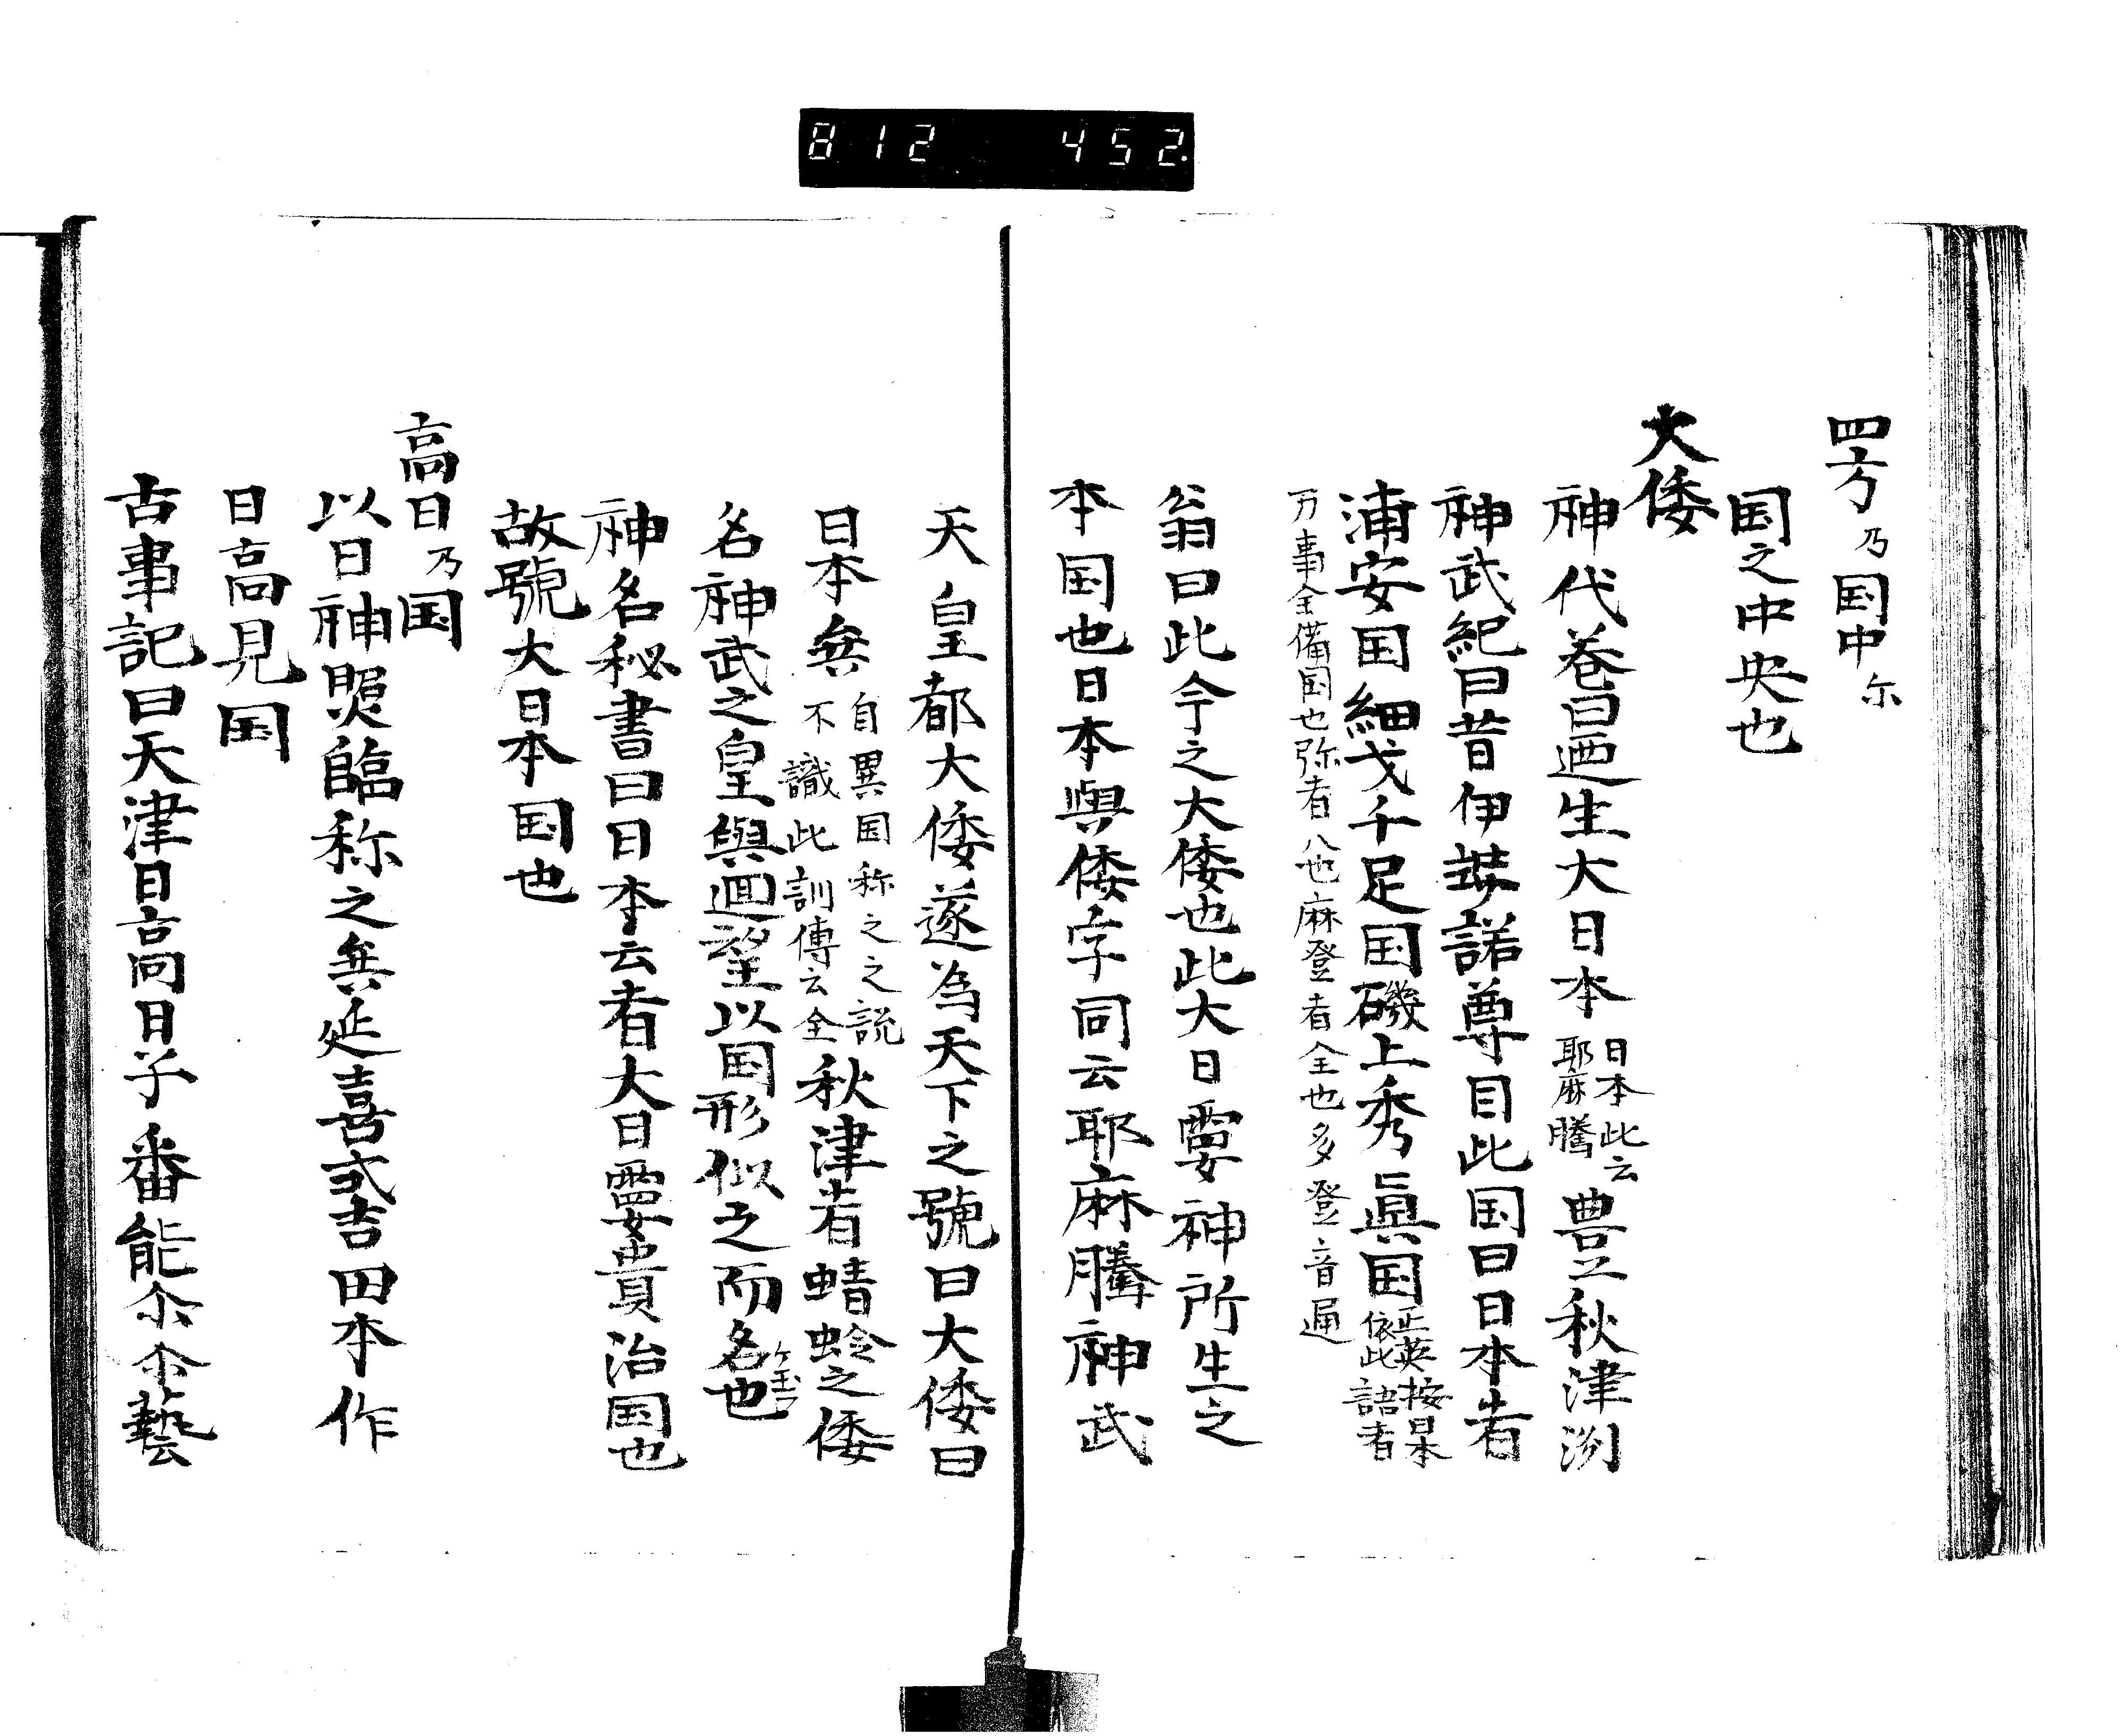 812 452.
四方乃国中尓
国之中央也
大倭
神代巻曰廼生大日本日本此云耶麻騰豊秋津洲
神武紀曰昔伊弉諾尊目此国曰日本者
浦安国細戈千足国磯上秀眞国正英按日本依此語者
万事全備国也弥者八也麻登者全也多登音通
翁曰此今之大倭也此大日孁神所生之
本国也日本與倭字同云耶麻騰神武
天皇都大倭遂為天下之號曰大倭曰
日本矣自異国称之之説不識此訓傳云全秋津者蜻蛉之倭
名神武之皇輿廻望以国形似之而名也
神名秘書曰日本云者大日孁貴治国也
故號大日本国也
高日乃国
以日神照臨称之矣延喜式吉田本作
日高見国
古事記曰天津日高日子番能尓尓藝